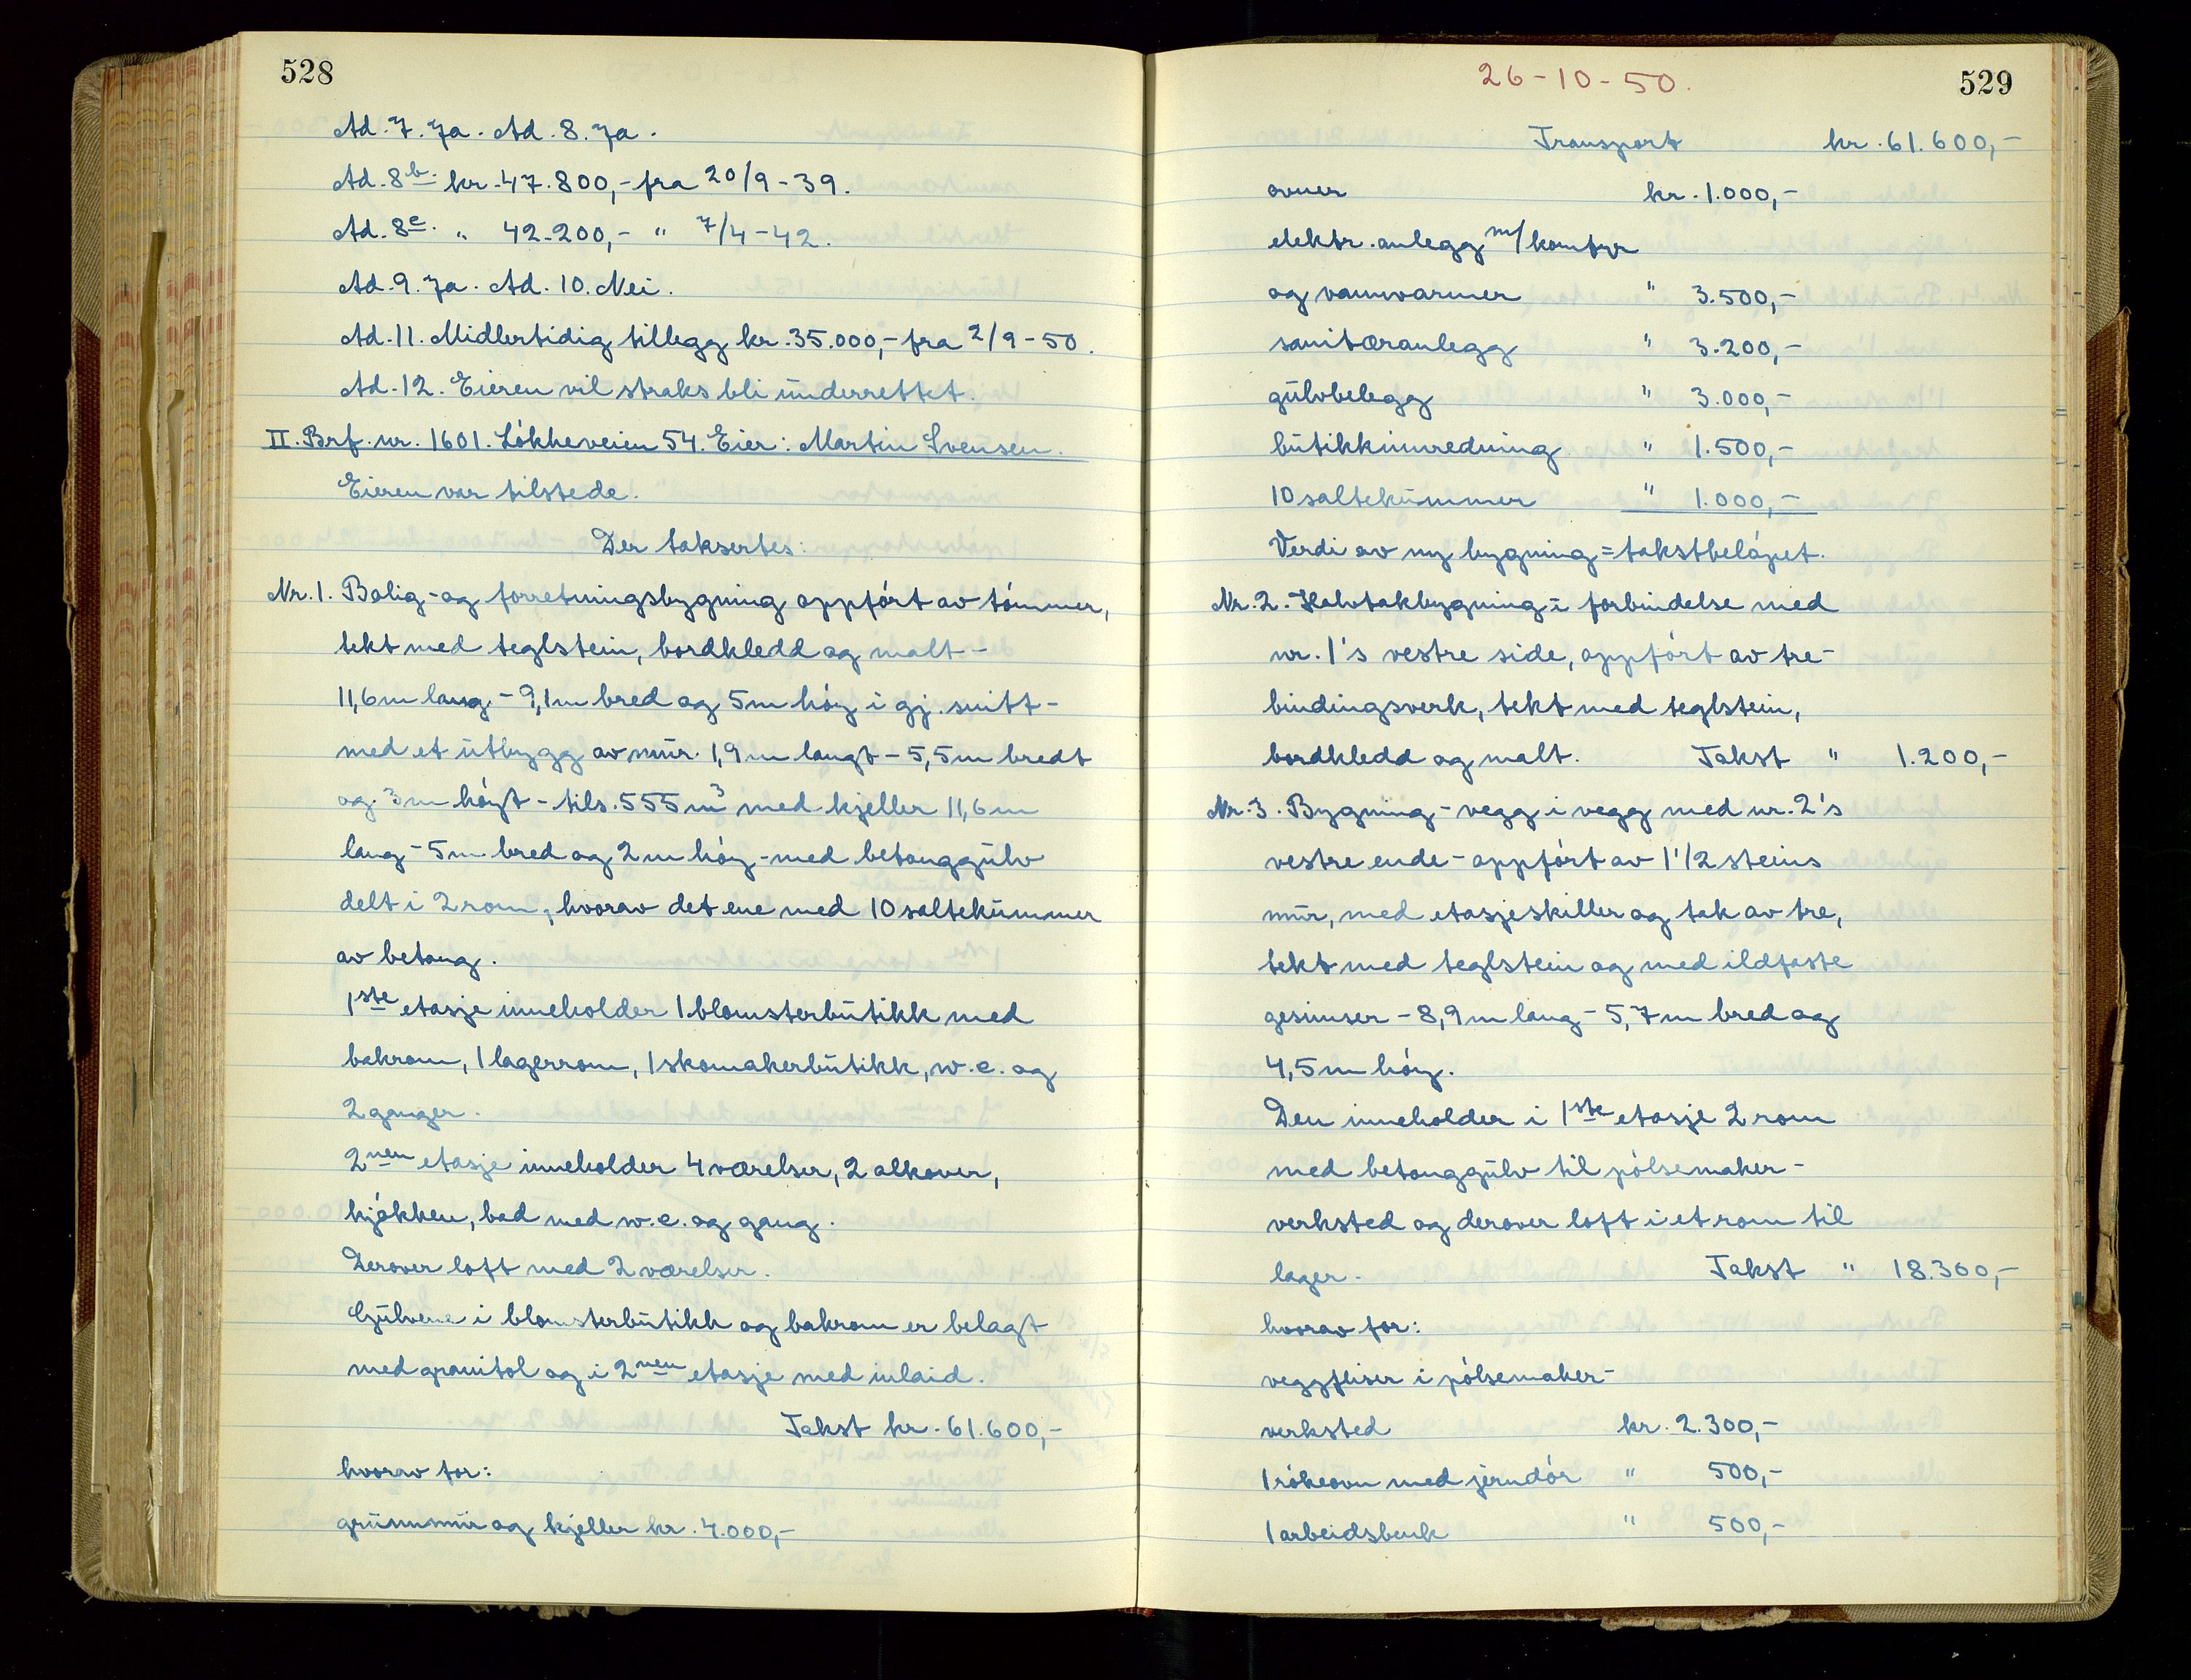 528
Ad. 7. Ja. Ad. 8. Ja.
Ad. 8b. kr. 47.800,- fra 20/9-39.
Ad. 8c. " 42.200,- " 7/4-42.
Ad. 9. Ja. Ad. 10. Nei.
Ad. 11. Midlertidig tillegg kr. 35.000,- fra 2/9-50.
Ad. 12. Eieren vil straks bli underrettet.
II. Brf. nr. 1601. Løkkeveien 54. Eier: Martin Svensen.
Eieren var tilstede.
Der taksertes:
Nr. 1. Bolig- og forretningsbygning oppført av tømmer,
tekt med teglstein, bordkledd og malt -
11,6 m lang - 9,1 m bred og 5 m høy i gj. snitt -
med et utbygg av mur 1,9 m langt - 5,5 m bredt
og 3 m høyt - tils. 555 m3 med kjeller 11,6 m
lang - 5 m bred og 2 m høy - med betonggulv
delt i 2 rom, hvorav det ene med 10 saltekummer
av betong.
1ste etasje inneholder 1 blomsterbutikk med
bakrom, 1 lagerrom, 1 skomakerbutikk, w.c. og
2 ganger.
2nen etasje inneholder 4 værelser, 2 alkover,
kjøkken, bad med w.c. og gang.
Derover loft med 2 værelser.
Gulvene i blomsterbutikk og bakrom er belagt
med granitol og i 2nen etasje med inlaid.
Takst kr. 61.600,-
hvorav for:
grunnmur og kjeller kr. 4.000,-
26-10-50.
529
Transport kr. 61.600,-
ovner kr. 1.000,-
elektr. anlegg m/komfyr
og vannvarmer " 3.500,-
sanitæranlegg " 3.200,-
gulvbelegg " 3.000,-
butikkinnredning " 1.500,-
10 saltekummer " 1.000,-
Verdi av ny bygning = takstbeløpet.
Nr. 2. Halvtakbygning i forbindelse med
nr. 1's vestre side, oppført av tre-
bindingsverk, tekt med teglstein,
bordkledd og malt. Takst " 1.200,-
Nr. 3. Bygning - vegg i vegg med nr. 2's
vestre ende - oppført av 1 1/2 steins
mur, med etasjeskiller og tak av tre,
tekt med teglstein og med ildfaste
gesimser - 8,9 m lang - 5,7 m bred og
4,5 m høy.
Den inneholder i 1ste etasje 2 rom
med betonggulv til pølsemaker-
verksted og derover loft i et rom til
lager. Takst " 18.300,-
hvorav for:
veggfliser i pølsemaker-
verksted kr. 2.300,-
1 røkeovn med jerndør " 500,-
1 arbeidsbenk " 500,-